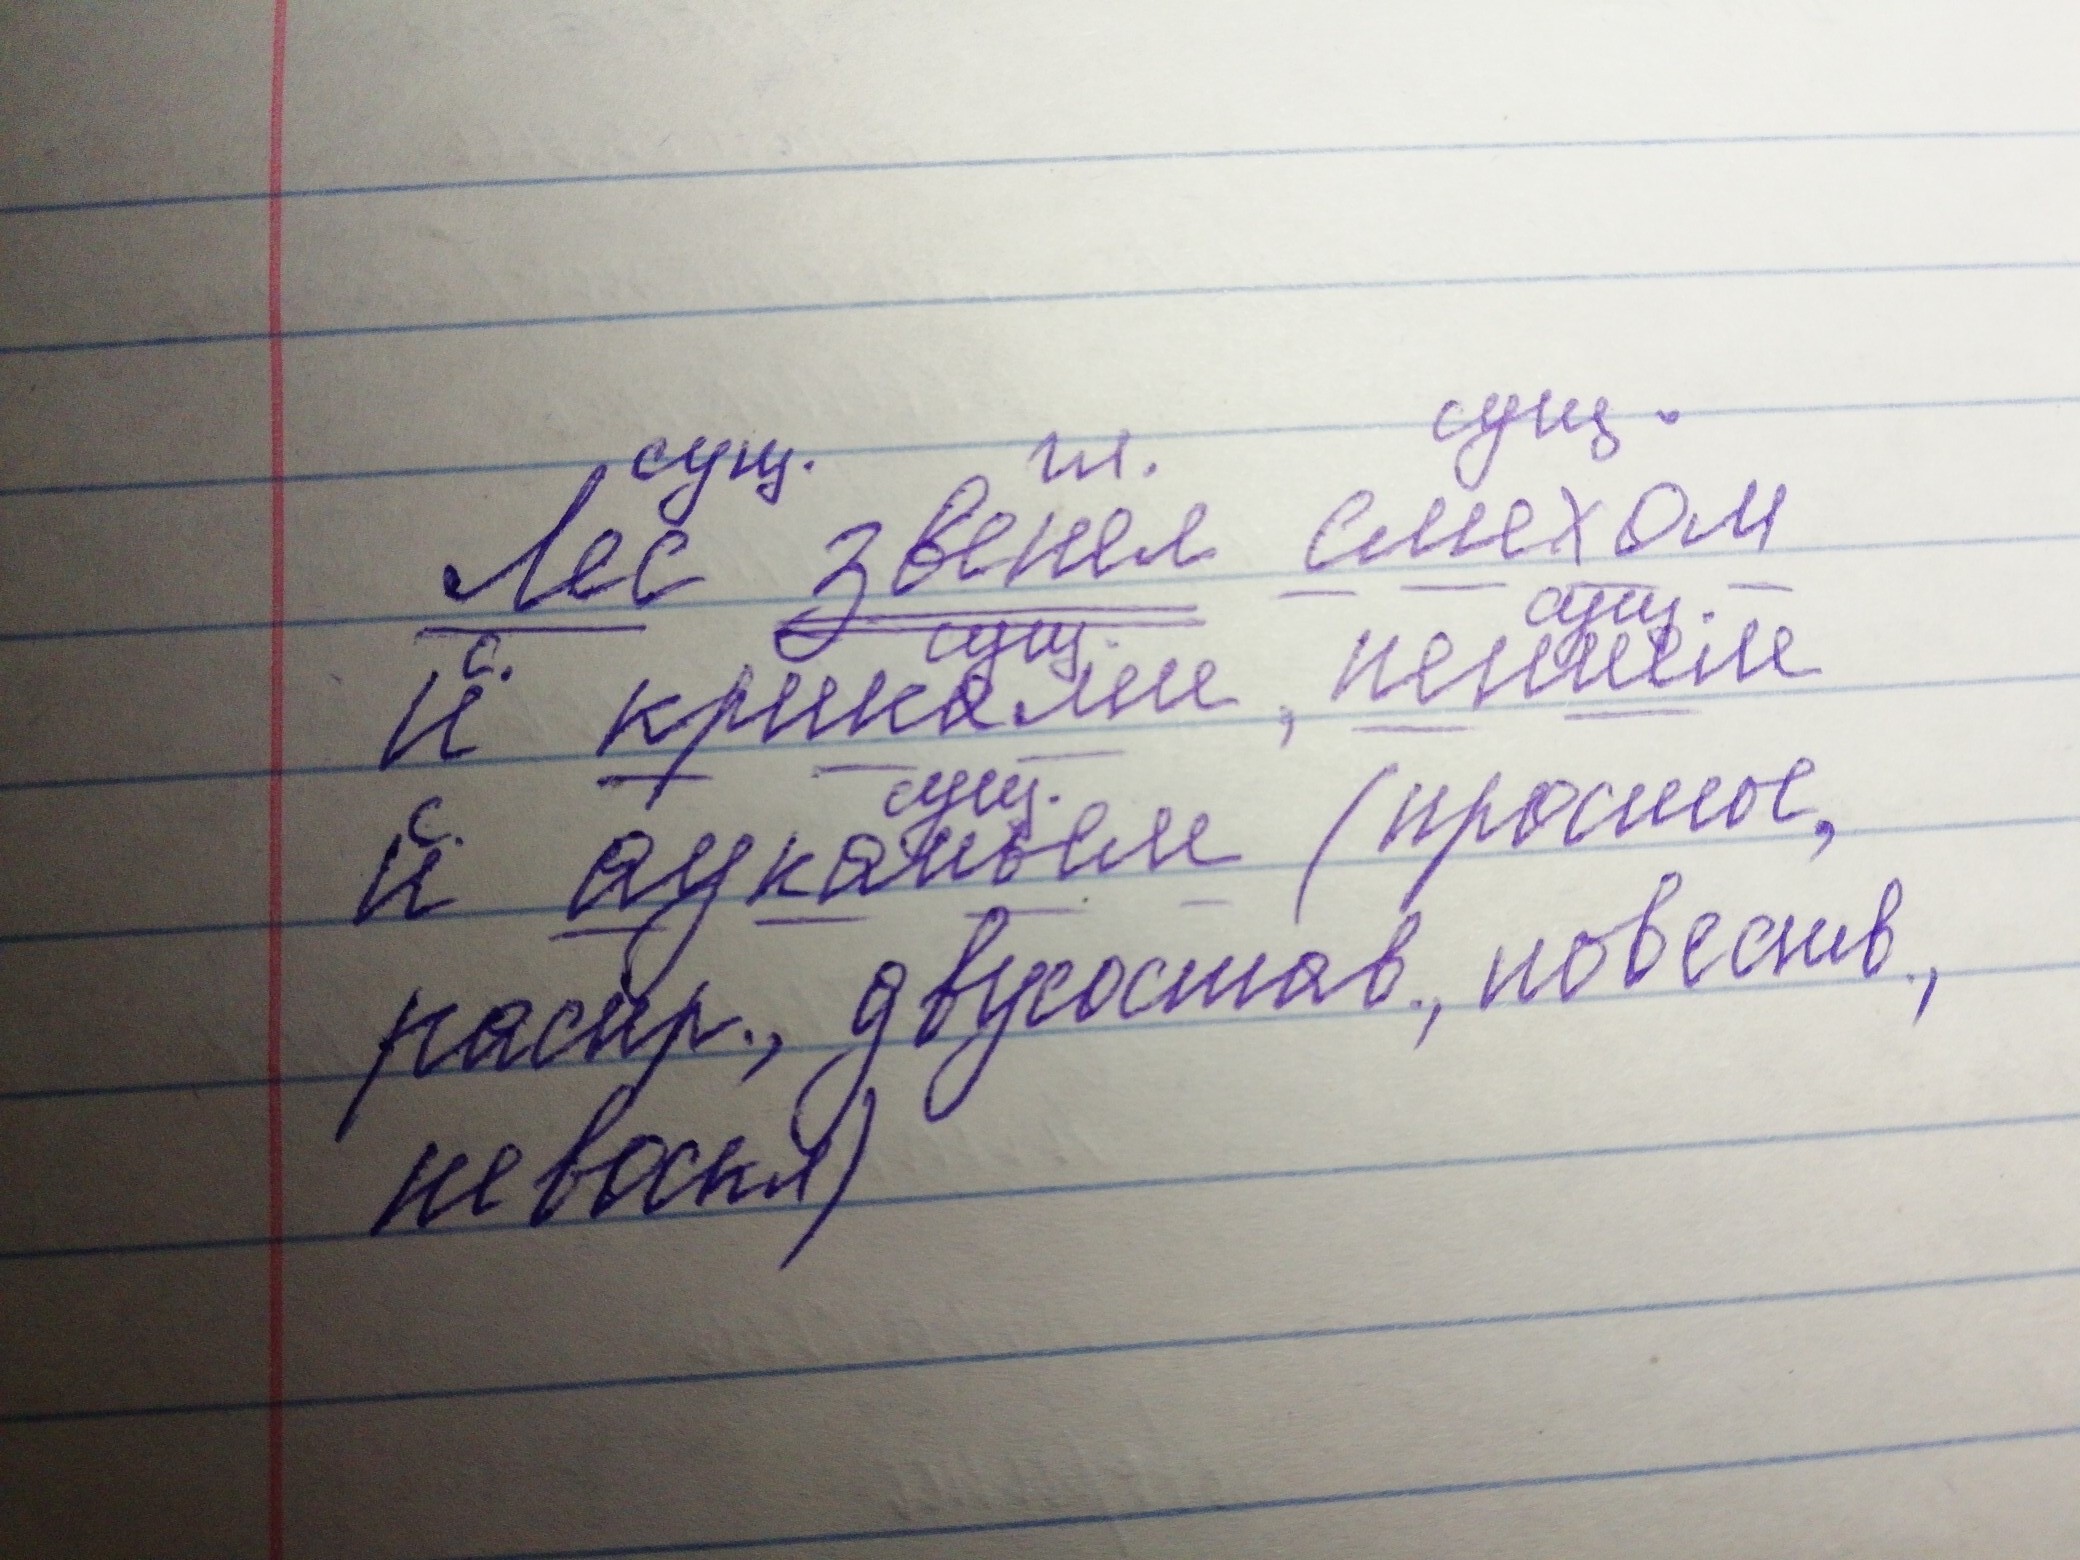 сущ. гл. сущ.
Лес звенел смехом
с. сущ. сущ.
и криками, пением
с. сущ.
и ауканьем (простое,
распр., двусостав., повеств.,
невоскл)